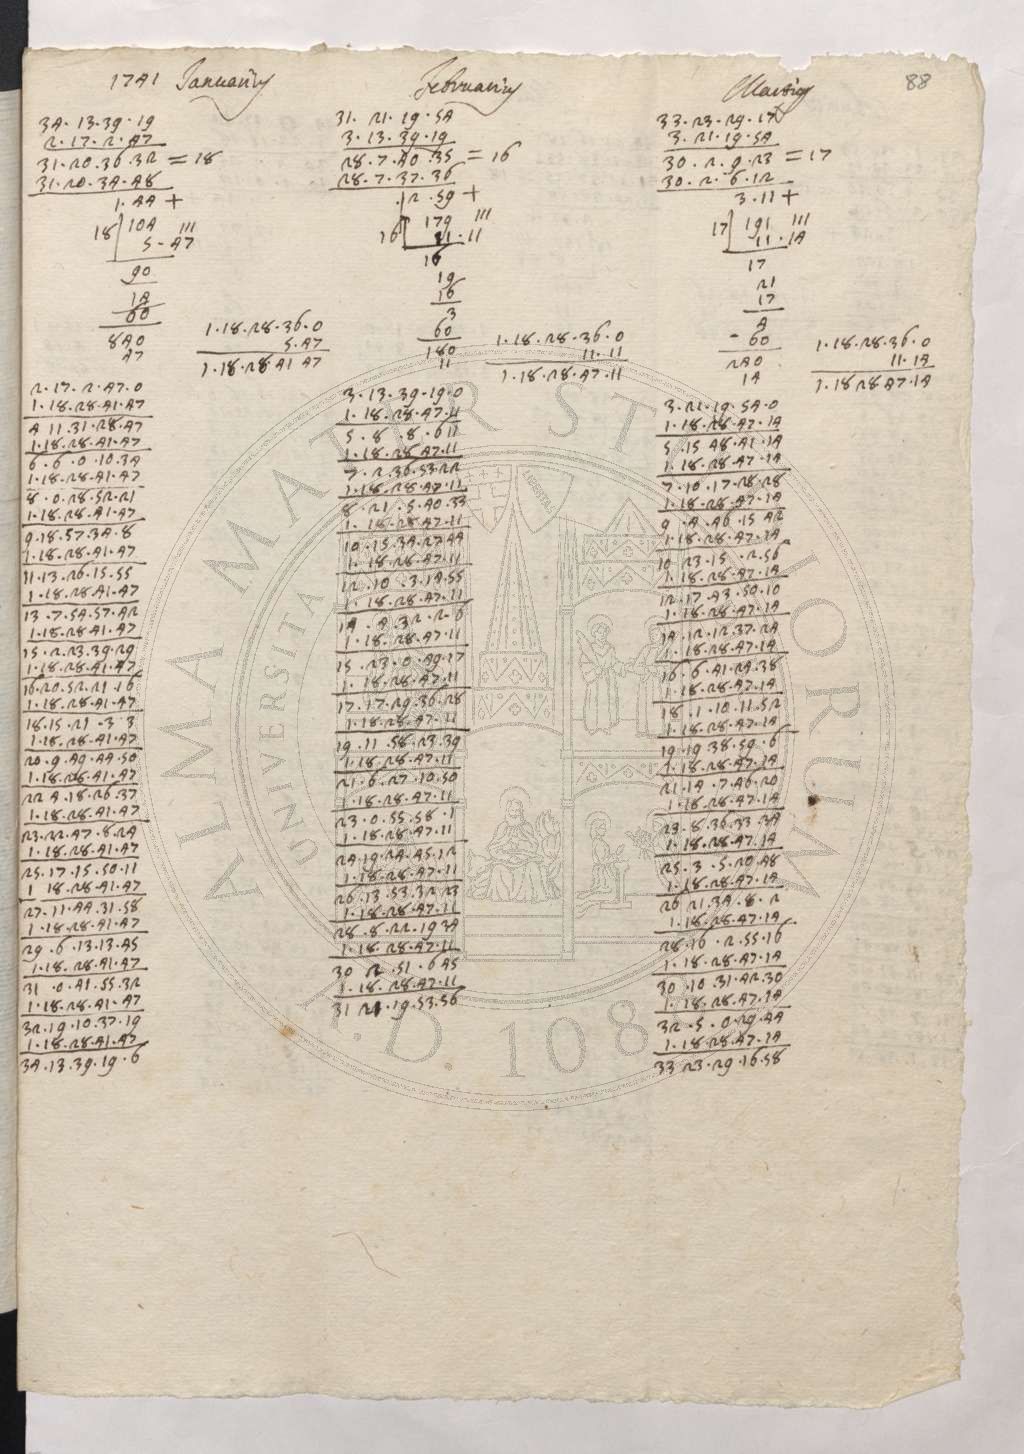 88
1741 Januariy
34.13.39.19
2.17.2.47
31.20.36.32 = 18
31.20.34.48
1.44 +
18 104 III
5.47
90
14
60
840
47
1.18.28.36.0
5.47
1.18.28.41 47
2.17.2.47.0
1.18.28.41.47
4 11.31.28.47
1.18.28.41.47
6.6.0.10.34
1.18.28.41.47
8.0.28.52.21
1.18.28.41.47
9.18.57.34.8
1.18.28.41.47
11.13.26.15.55
1.18.28.41.47
13.7.54.57.42
1.18.28.41.47
15.2.23.39.29
1.18.28.41.47
16.20.52.21.16
1.18.28.41.47
18.15.21.3 3
1.18.28.41.47
20.9.49.44.50
1.18.28.41.47
22 4.18.26.37
1.18.28.41.47
23.22.47.8.24
1.18.28.41.47
25.17.15.50.11
1 18.28.41.47
27.11.44.31.58
1.18.28.41.47
29.6.13.13.45
1.18.28.41.47
31.0.41.55.32
1.18.28.41.47
32.19.10.37.19
1.18.28.41.47
34.13.39.19.6
Februariy
31.21.19.54
3.13.39.19
28.7.40.35 = 16
28.7.37.36
.2.59 +
16 179 III
11.11
16
19
16
3
60
180
11
1.18.28.36.0
11.11
1.18.28.47.11
3.13.39.19.0
1.18.28.47.11
5.8.8.6 11
1.18.28.47.11
7.2.36.53.22
1.18.28.47.11
8.21.5.40.33
1.18.28.47.11
10.15.34.27.44
1.18.28.47.11
12.10.3.14.55
1.18.28.47.11
14.4.32.2.6
1.18.28.47.11
15.23.0.49.17
1.18.28.47.11
17.17.29.36.28
1.18.28.47.11
19.11.58.23.39
1.18.28.47.11
21.6.27.10.50
1.18.28.47.11
23.0.55.58.1
1.18.28.47.11
24.19.24.45.12
1.18.28.47.11
26.13.53.32.23
1.18.28.47.11
28.8.22.19 34
1.18.28.47.11
30 2.51.6 45
1.18.28.47.11
31 21.19.53.56
Martiy
33.23.29.17
3.21.19.54
30.2.9.23 = 17
30.2.6.12
3.11 +
17 191 III
11.14
17
21
17
4
60
240
14
1.18.28.36.0
11.14
1.18.28.47.14
3.21.19.54.0
1.18.28.47.14
5.15 48.41.14
1.18.28.47.14
7.10.17.28.28
1.18.28.47.14
9.4.46.15 42
1.18.28.47.14
10 23.15.2.56
1.18.28.47.14
12.17.43.50.10
1.18.28.47.14
14.12.12.37.24
1.18.28.47.14
16.6.41.24.38
1.18.28.47.14
18.1.10.11.52
1.18.28.47.14
19.19 38.59.6
1.18.28.47.14
21.14.7.46.20
1.18.28.47.14
23.8.36.33 34
1.18.28.47.14
25.3.5.20 48
1.18.28.47.14
26 21.34.8.2
1.18.28.47.14
28.16.2.55.16
1.18.28.47.14
30.10.31.42.30
1.18.28.47.14
32.5.0.29.44
1.18.28.47.14
33 23.29.16.58
ALMA MATER STUDIORUM
UNIVERSITA
A.D 1088